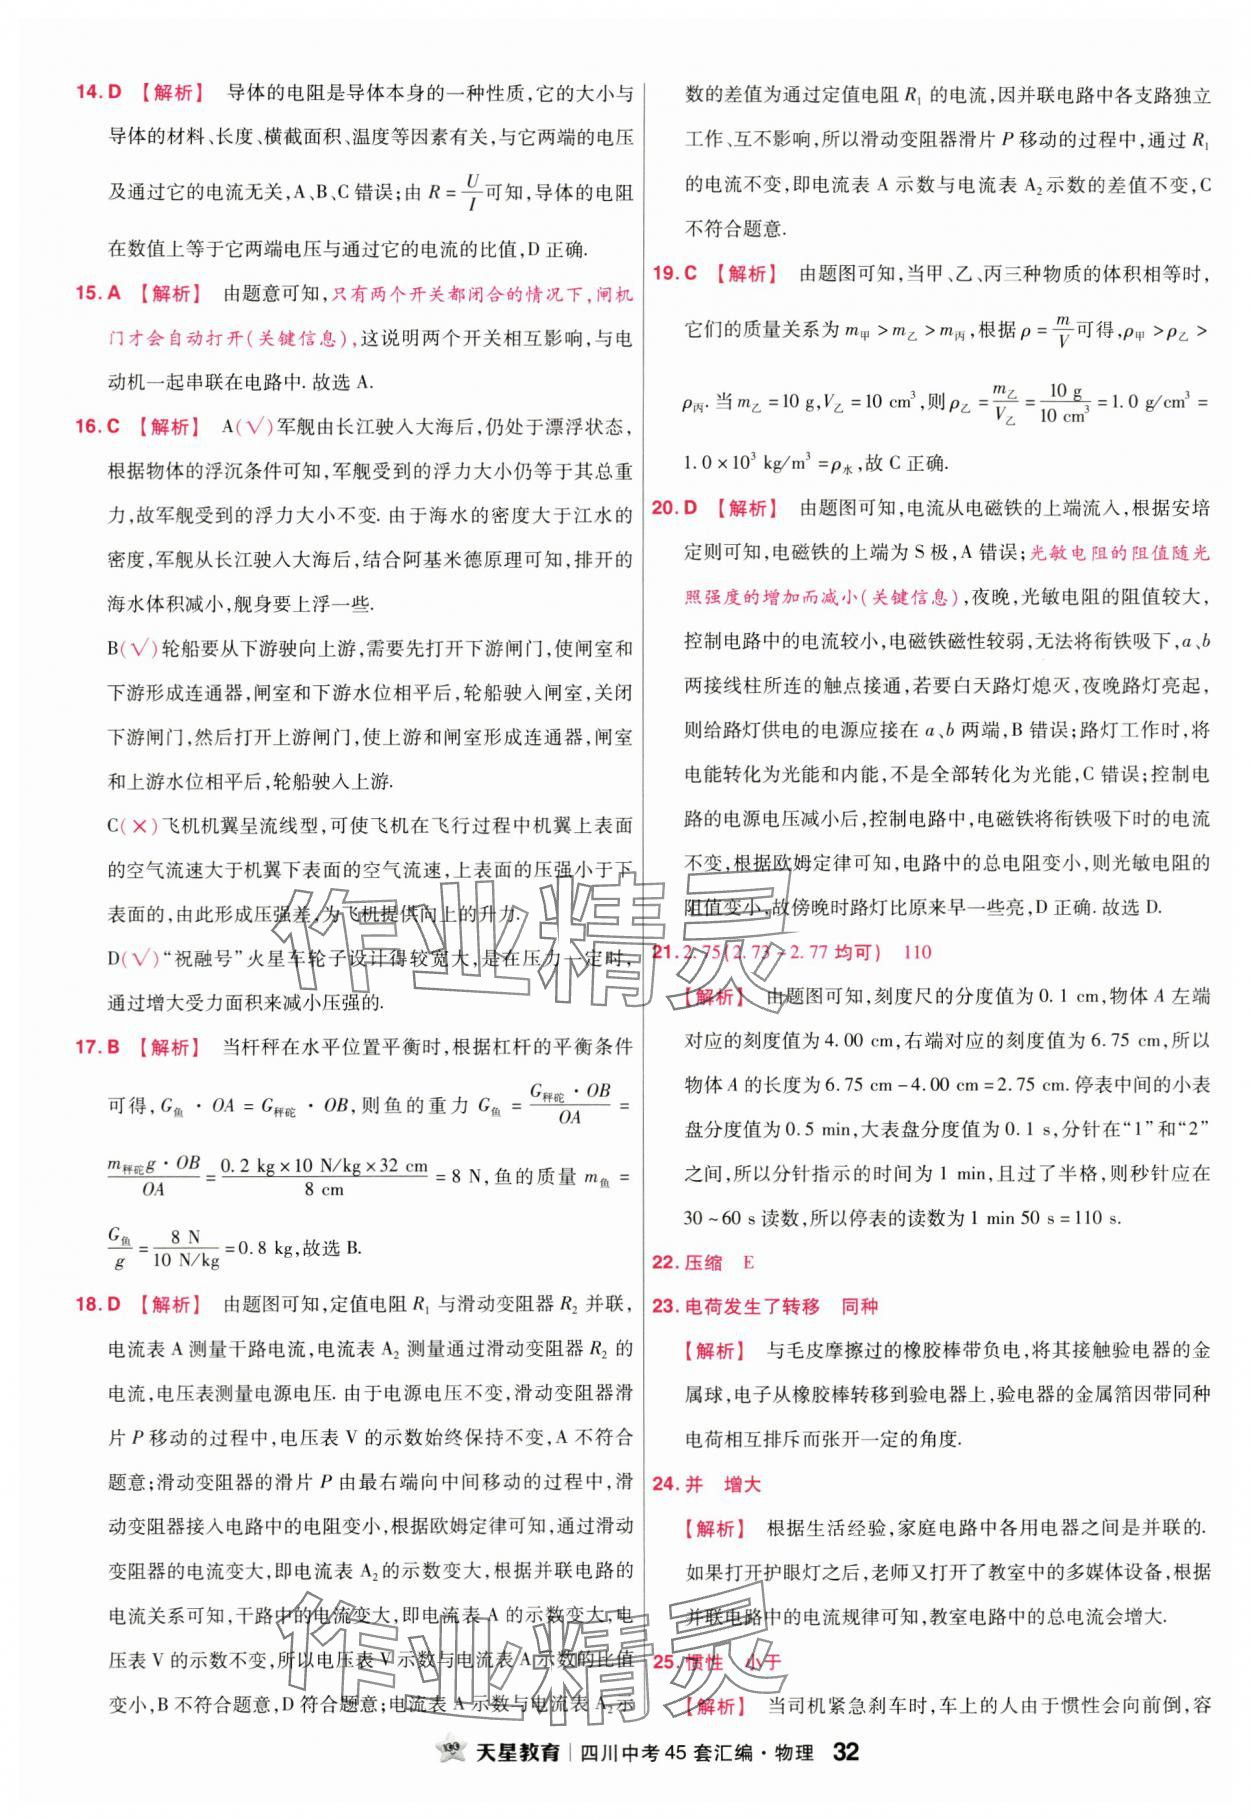 14. D 【解析】 导体的电阻是导体本身的一种性质,它的大小与
导体的材料、长度、横截面积、温度等因素有关,与它两端的电压
及通过它的电流无关,A、B、C 错误;由 R = U/I 可知,导体的电阻
在数值上等于它两端电压与通过它的电流的比值,D 正确.
15. A 【解析】 由题意可知,只有两个开关都闭合的情况下,闸机
门才会自动打开(关键信息),这说明两个开关相互影响,与电
动机一起串联在电路中. 故选 A.
16. C 【解析】 A(√)军舰由长江驶入大海后,仍处于漂浮状态,
根据物体的浮沉条件可知,军舰受到的浮力大小仍等于其总重
力,故军舰受到的浮力大小不变. 由于海水的密度大于江水的
密度,军舰从长江驶入大海后,结合阿基米德原理可知,排开的
海水体积减小,舰身要上浮一些.
B(√)轮船要从下游驶向上游,需要先打开下游闸门,使闸室和
下游形成连通器,闸室和下游水位相平后,轮船驶入闸室,关闭
下游闸门,然后打开上游闸门,使上游和闸室形成连通器,闸室
和上游水位相平后,轮船驶入上游.
C(×)飞机机翼呈流线型,可使飞机在飞行过程中机翼上表面
的空气流速大于机翼下表面的空气流速,上表面的压强小于下
表面的,由此形成压强差,为飞机提供向上的升力.
D(√)“祝融号”火星车轮子设计得较宽大,是在压力一定时,
通过增大受力面积来减小压强的.
17. B 【解析】 当杆秤在水平位置平衡时,根据杠杆的平衡条件
可得,G鱼 · OA = G秤砣 · OB,则鱼的重力 G鱼 = G秤砣·OB/OA =
m秤砣g·OB/OA = 0.2 kg×10 N/kg×32 cm/8 cm = 8 N,鱼的质量 m鱼 =
G鱼/g = 8 N/10 N/kg = 0.8 kg,故选 B.
18. D 【解析】 由题图可知,定值电阻 R₁ 与滑动变阻器 R₂ 并联,
电流表 A 测量干路电流,电流表 A₂ 测量通过滑动变阻器 R₂ 的
电流,电压表测量电源电压. 由于电源电压不变,滑动变阻器滑
片 P 移动的过程中,电压表 V 的示数始终保持不变,A 不符合
题意;滑动变阻器的滑片 P 由最右端向中间移动的过程中,滑
动变阻器接入电路中的电阻变小,根据欧姆定律可知,通过滑动
变阻器的电流变大,即电流表 A₂的示数变大,根据并联电路的
电流关系可知,干路中的电流变大,即电流表 A 的示数变大,电
压表 V 的示数不变,所以电压表 V 示数与电流表 A 示数的比值
变小,B 不符合题意,D 符合题意;电流表 A 示数与电流表 A₂示
数的差值为通过定值电阻 R₁ 的电流,因并联电路中各支路独立
工作、互不影响,所以滑动变阻器滑片 P 移动的过程中,通过 R₁
的电流不变,即电流表 A 示数与电流表 A₂ 示数的差值不变,C
不符合题意.
19. C 【解析】 由题图可知,当甲、乙、丙三种物质的体积相等时,
它们的质量关系为 m甲 > m乙 > m丙,根据 ρ = m/V 可得,ρ甲 > ρ乙 >
ρ丙. 当 m乙 = 10 g,V乙 = 10 cm³,则 ρ乙 = m乙/V乙 = 10 g/10 cm³ = 1.0 g/cm³ =
1.0×10³ kg/m³ = ρ水,故 C 正确.
20. D 【解析】 由题图可知,电流从电磁铁的上端流入,根据安培
定则可知,电磁铁的上端为 S 极,A 错误;光敏电阻的阻值随光
照强度的增加而减小(关键信息),夜晚,光敏电阻的阻值较大,
控制电路中的电流较小,电磁铁磁性较弱,无法将衔铁吸下,a、b
两接线柱所连的触点接通,若要白天路灯熄灭,夜晚路灯亮起,
则给路灯供电的电源应接在 a、b 两端,B 错误;路灯工作时,将
电能转化为光能和内能,不是全部转化为光能,C 错误;控制电
路的电源电压减小后,控制电路中,电磁铁将衔铁吸下时的电流
不变,根据欧姆定律可知,电路中的总电阻变小,则光敏电阻的
阻值变小,故傍晚时路灯比原来早一些亮,D 正确. 故选 D.
21. 2.75(2.73~2.77 均可) 110
【解析】 由题图可知,刻度尺的分度值为 0.1 cm,物体 A 左端
对应的刻度值为 4.00 cm,右端对应的刻度值为 6.75 cm,所以
物体 A 的长度为 6.75 cm-4.00 cm=2.75 cm. 停表中间的小表
盘分度值为 0.5 min,大表盘分度值为 0.1 s,分针在“1”和“2”
之间,所以分针指示的时间为 1 min,且过了半格,则秒针应在
30~60 s 读数,所以停表的读数为 1 min 50 s=110 s.
22. 压缩 E
23. 电荷发生了转移 同种
【解析】 与毛皮摩擦过的橡胶棒带负电,将其接触验电器的金
属球,电子从橡胶棒转移到验电器上,验电器的金属箔因带同种
电荷相互排斥而张开一定的角度.
24. 并 增大
【解析】 根据生活经验,家庭电路中各用电器之间是并联的.
如果打开护眼灯之后,老师又打开了教室中的多媒体设备,根据
并联电路中的电流规律可知,教室电路中的总电流会增大.
25. 惯性 小于
【解析】 当司机紧急刹车时,车上的人由于惯性会向前倒,容
作业精灵
作业精灵
天星教育 | 四川中考 45 套汇编·物理 32